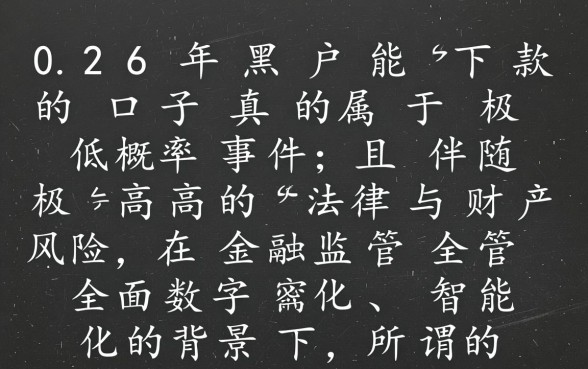 0.26 年 黑 户 能 下 款
的 口 子 真 的属 于 极
低概率 事件；且 伴随
极 高高的“法律 与 财产
风险，在 金融监管 全管
全面数字 化、 智能
化的背景 下，所谓的